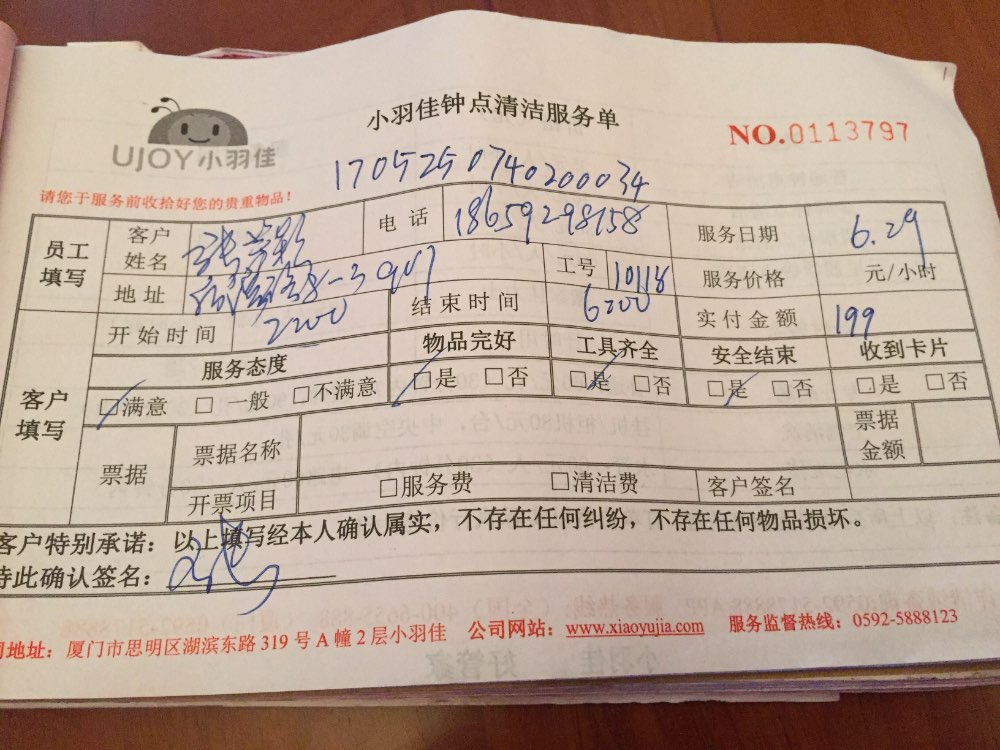 小羽佳钟点清洁服务单
UJOY小羽佳
NO.0113797
170525074020034
请您于服务前收拾好您的贵重物品！
员工填写 客户姓名 电话 18659298158 服务日期 6.29
地址 8-3 907 工号 10118 服务价格 元/小时
开始时间 2200 结束时间 6200 实付金额 199
客户填写 服务态度 物品完好 工具齐全 安全结束 收到卡片
□满意 □一般 □不满意 □是 □否 □是 □否 □是 □否 □是 □否
票据 票据名称 票据金额
开票项目 □服务费 □清洁费 客户签名
客户特别承诺：以上填写经本人确认属实，不存在任何纠纷，不存在任何物品损坏。
特此确认签名：
地址：厦门市思明区湖滨东路319号A幢2层小羽佳 公司网站：www.xiaoyujia.com 服务监督热线：0592-5888123